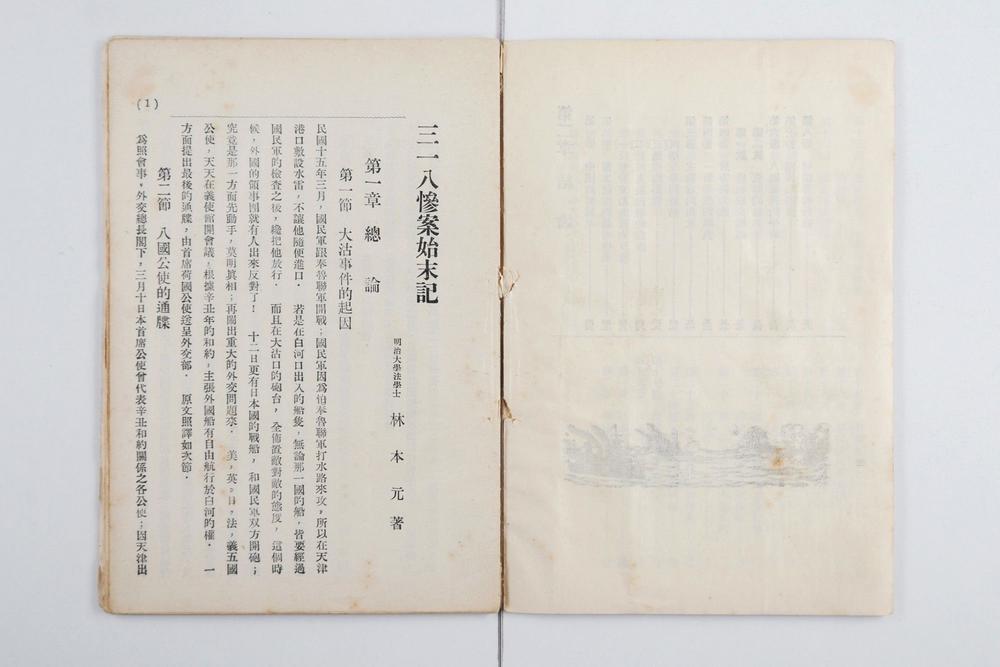 三一八慘案始末記
明治大學法學士 林本元著
第一章 總論
第一節 大沽事件的起因
民國十五年三月，國民軍跟奉魯聯軍開戰；國民軍因爲怕奉魯聯軍打水路來攻，所以在天津
港口敷設水雷，不讓他隨便進口． 若是在白河口出入的船隻，無論那一國的船，皆要經過
國民軍的檢查之後，纔把他放行． 而且在大沽口的砲台，全佈置敵對敵的態度，這個時
候，外國的領事團就有人出來反對了！ 十二日更有日本國的戰船，和國民軍双方開砲；
究竟是那一方面先動手，莫明眞相；再鬧出重大的外交問題來． 美，英。日，法，義五國
公使，天天在義使館開會議，根據辛丑年的和約，主張外國船有自由航行於白河的權． 一
方面提出最後的通牒，由首席荷國公使送呈外交部． 原文照譯如次節．
第二節 八國公使的通牒
爲照會事，外交總長閣下，三月十日本首席公使曾代表辛丑和約關係之各公使；因天津出
(1)